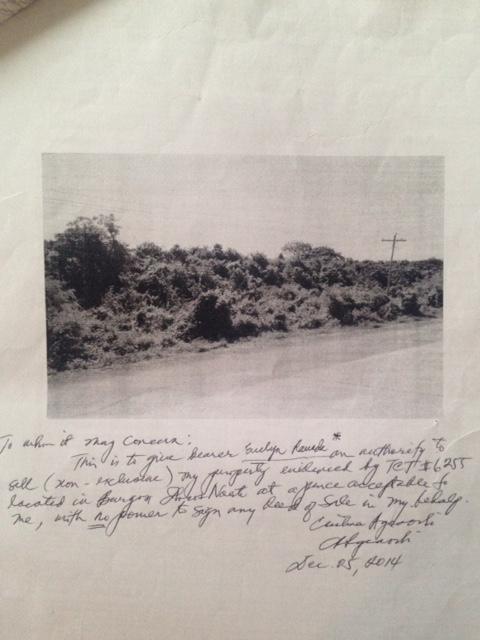 To whom it may Concern:
This is to give bearer Evelyn * an authority to
sell (non-exclusive) my property evidenced by TCT #6255
located in at a price acceptable to
me, with no power to sign any Deed of Sale in my behalf.
Dec. 25, 2014